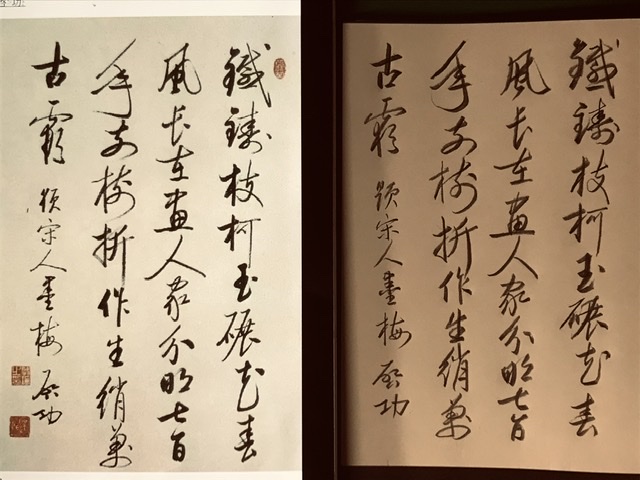 鐵鑄枝柯玉碾花春
風長在畫人家分明七百
年前樹折作生綃萬
古霞 題宋人墨梅 启功
鐵鑄枝柯玉碾花春
風長在畫人家分明七百
年前樹折作生綃萬
古霞 題宋人墨梅 启功